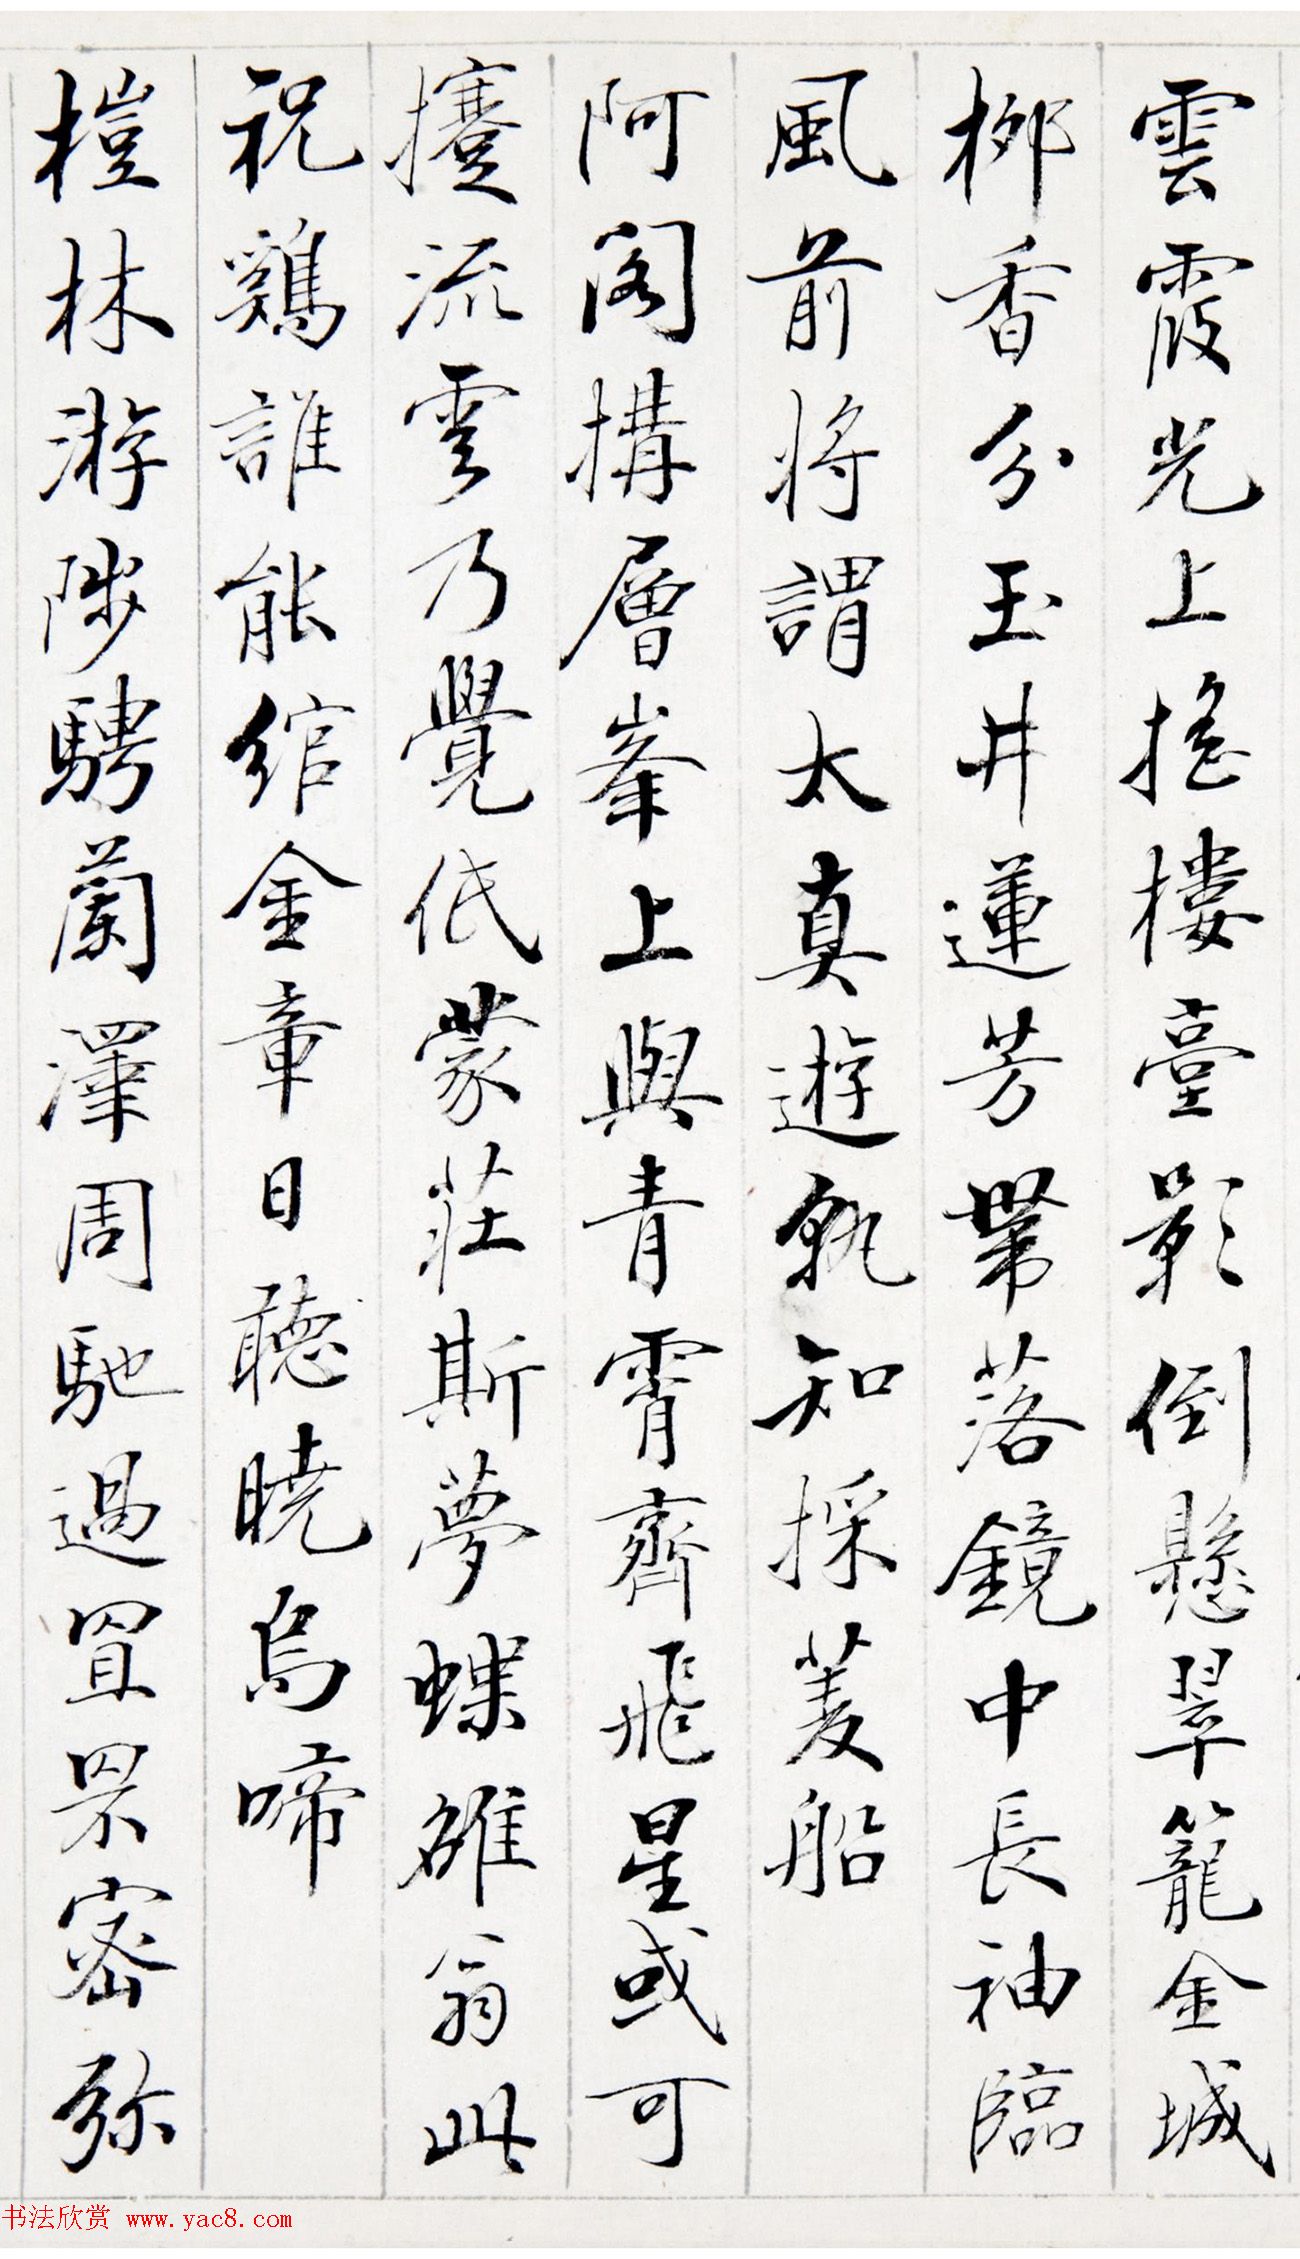 雲霞光上搖樓臺影倒懸翠籠金城
柳香分玉井蓮芳帶落鏡中長袖臨
風前將謂太真遊孰知採菱船
阿閣構層峯上與青霄齊飛星或可
攓流雲乃覺低蒙莊斯夢蝶雒翁此
祝鷄誰能綰金章日聽曉烏啼
榿林游陟騁蘭澤周馳過罝罘密弥
书法欣赏 www.yac8.com